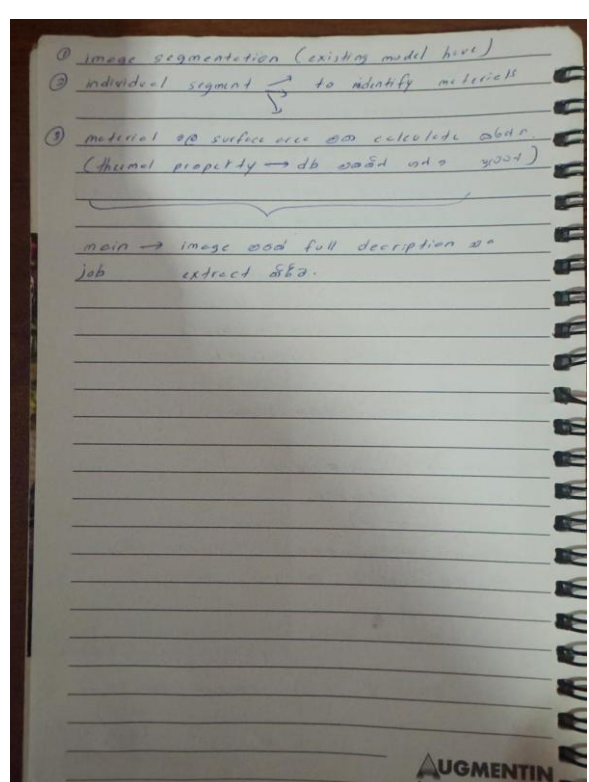 ① image segmentation (existing model have)
② individual segment → to identify materials
③ material surface area calculate
(thermal property → db
main → image full decription
job extract කිරීම.
AUGMENTIN